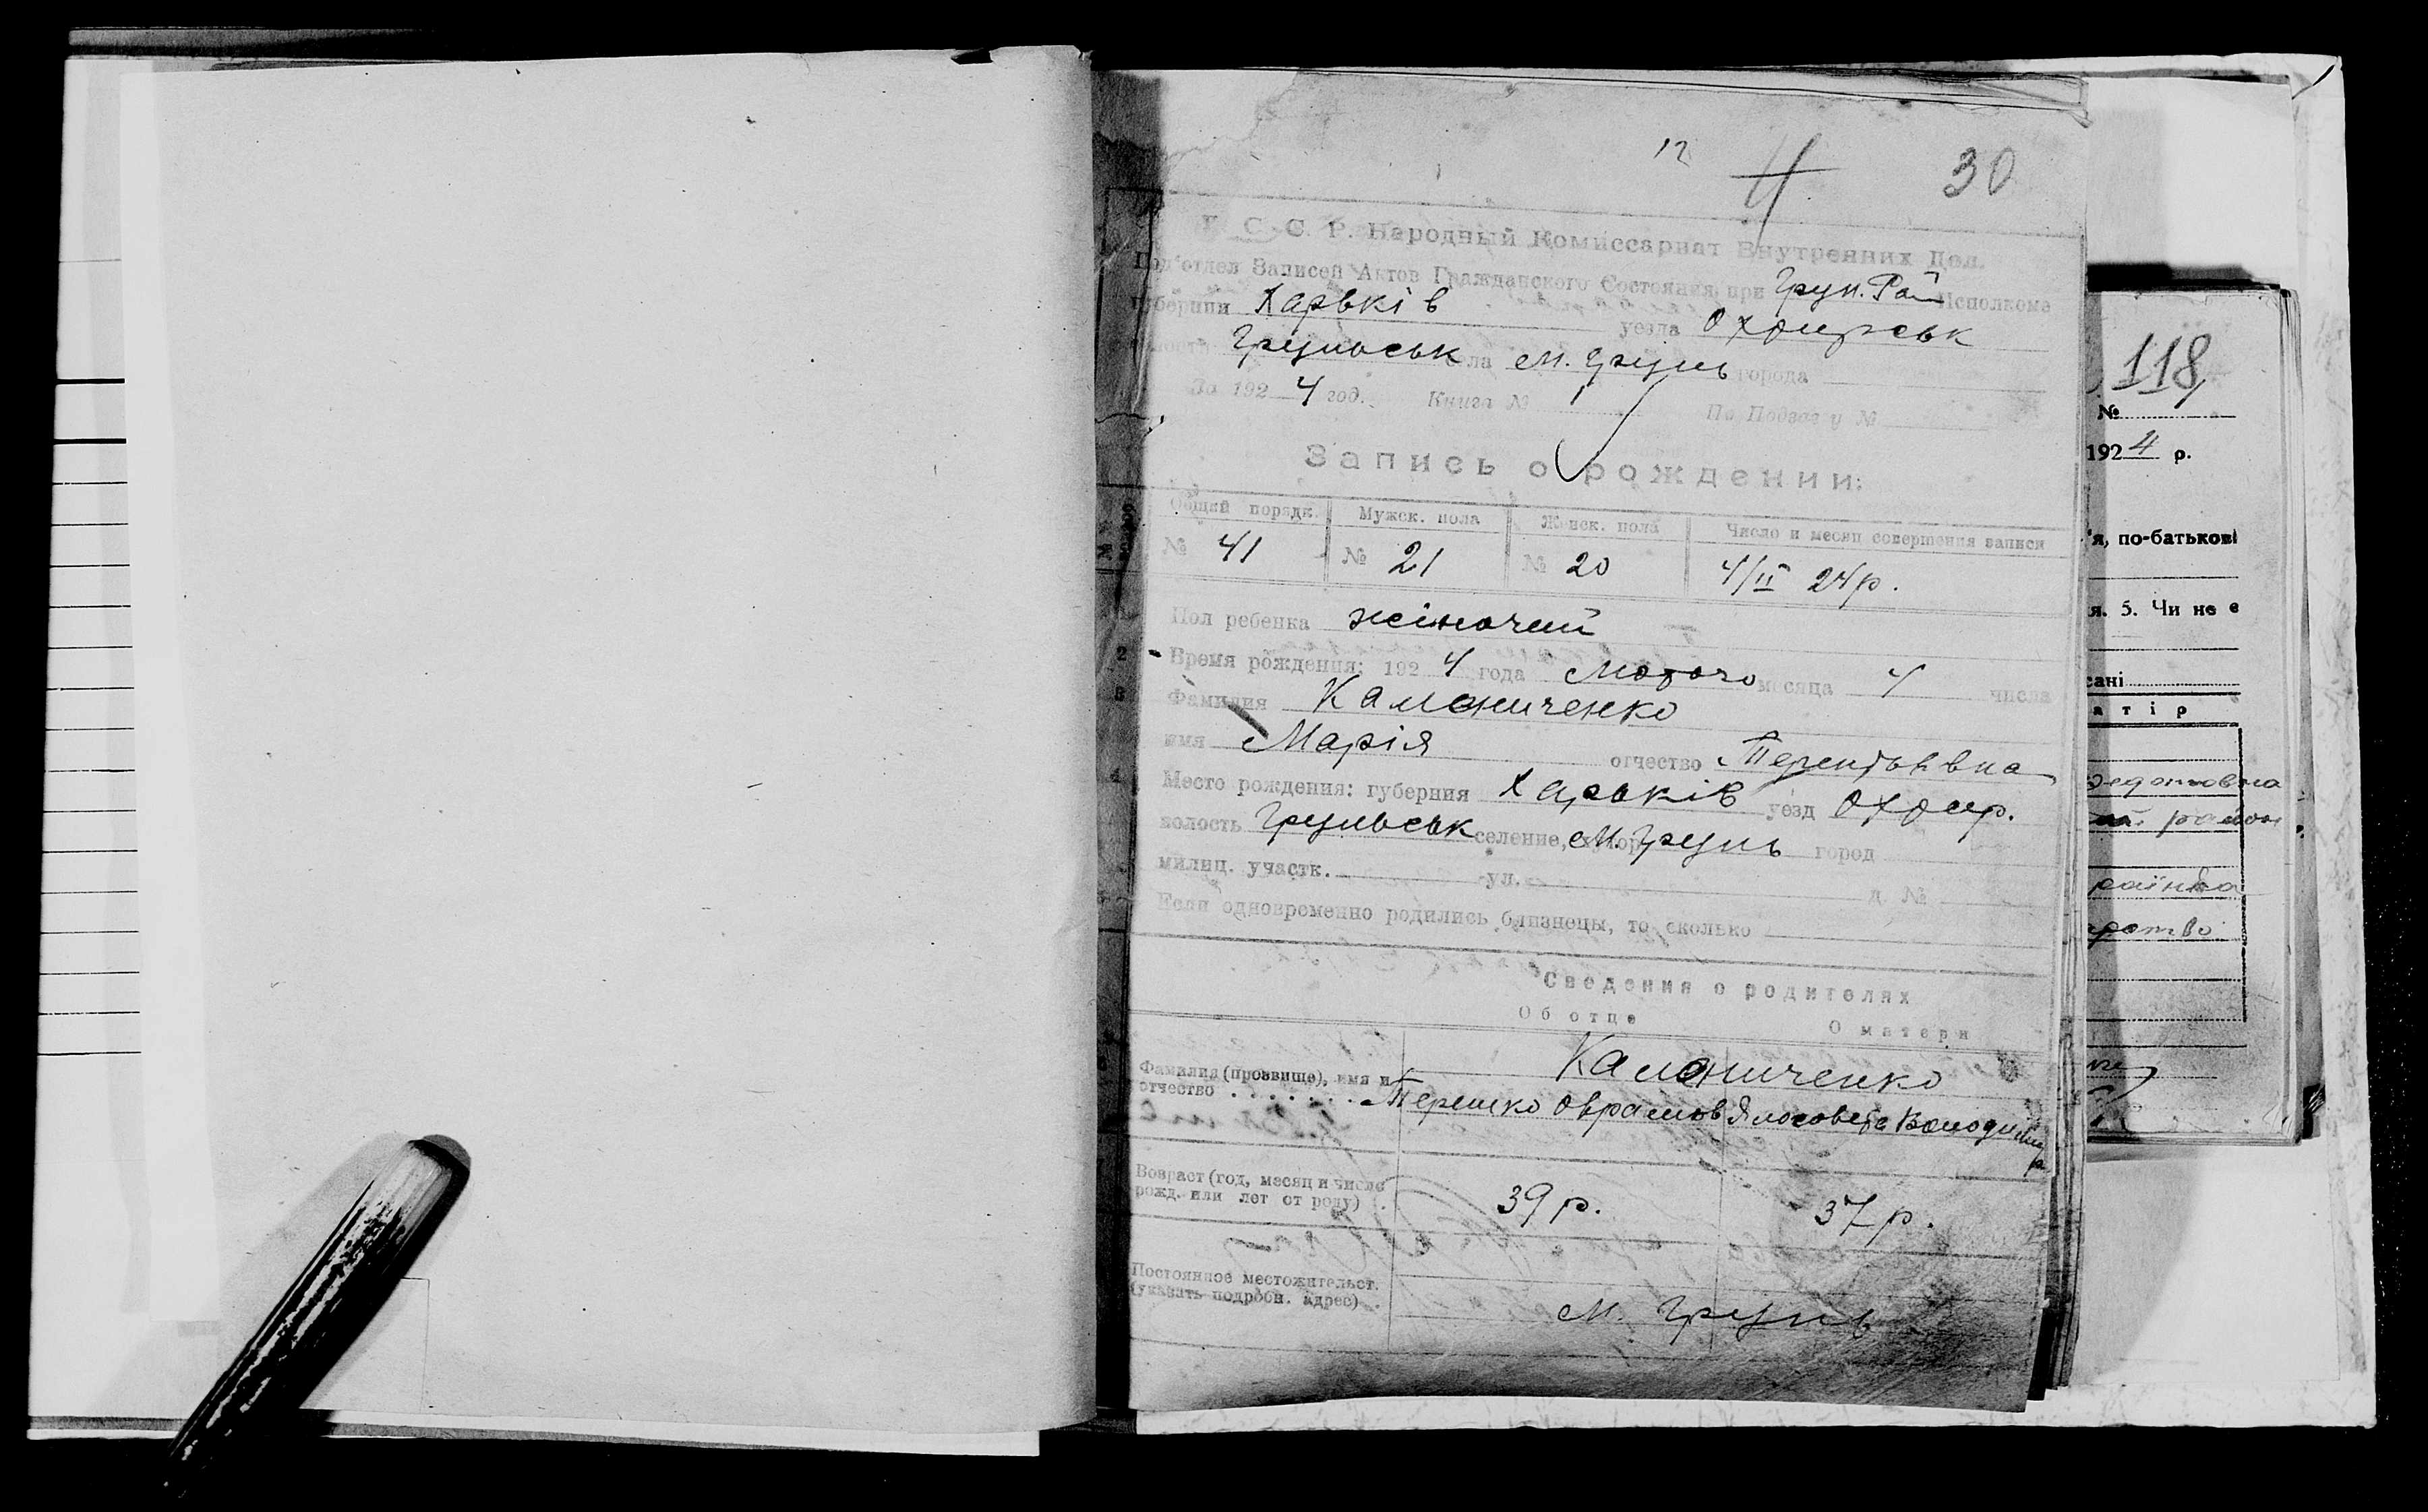 12 11 30
У. С. С. Р. Народный Комиссариат Внутренних Дел.
Под'отдел Записей Актов Гражданского Состояния при Грун. Рай Исполкоме
губернии Харьків уезда Охтирськ
волости Груньськ села м. Грунь города
За 1924 год. Книга № 1 По № 
Запись о рождении:
Общий порядк. Мужск. пола Женск. пола Число и месяц совершения записи
№ 41 № 21 № 20 4/II 24 р.
Пол ребенка жіночий
2 Время рождения: 1924 года Лютого месяца 4 числа
3 Фамилия Калениченко
имя Марія отчество Терентьївна
4 Место рождения: губерния Харьків уезд Охтир.
волость Груньськ селение, хутор м. Грунь город
милиц. участк. ул. д. №
Если одновременно родились близнецы, то сколько
Сведения о родителях
Об отце О матери
Калениченко
Фамилия (прозвище), имя и отчество
Терешко Оврамов
Возраст (год, месяц и число рожд. или лет от роду) 39 р. 37 р.
Постоянное местожительст. (указать подробн. адрес)
м. Грунь
118
№
1924 р.
'я, по-батькові
я. 5. Чи не є
атір
район